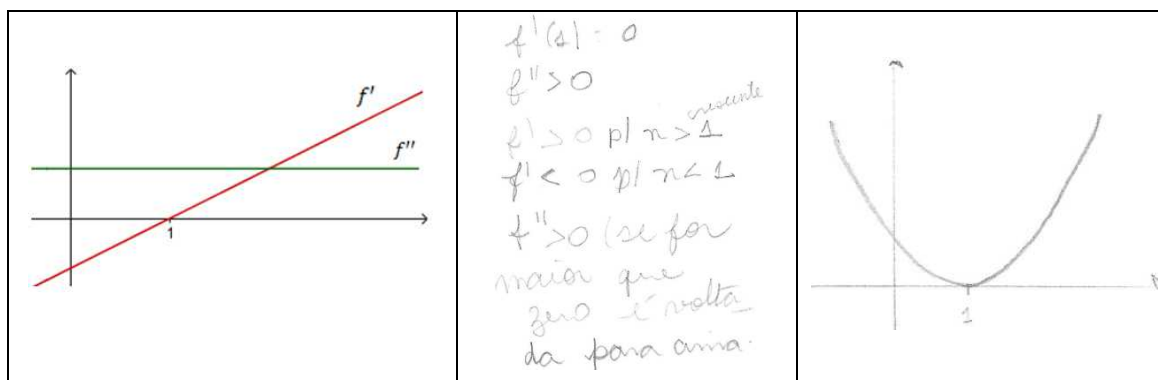 f'
f''
1
f'(1) = 0
f'' > 0
crescente
f' > 0 p/ x > 1
f' < 0 p/ x < 1
f'' > 0 (se for
maior que
zero é volta
da para cima.
1